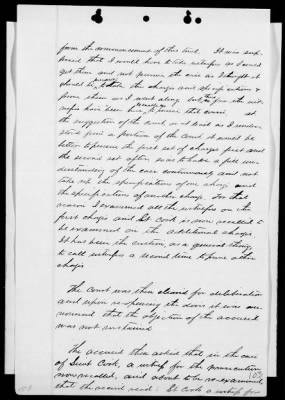 from the commencement of this trial. It was sup-
posed that I would have to take witnesses as I could
get them and not pursue the case as I thought it
should be, to take the charges and specifications &
prove them as I went along but thus far the wit-
nesses have been here, in this court at
the suggestion of the court, or at least as I under-
stood from a portion of the court, it would be
better to pursue the first set of charges first and
the second set after, so as to have a full un-
derstanding of the case continuously and not
take up the specifications of one charge and
the specifications of another charge. For that
reason I examined all the witnesses on the
first charges and Lt Cook is now recalled to
be examined on the additional charges.
It has been the custom, as a general thing,
to call witnesses a second time to prove other
charges
The Court was then cleared for deliberation
and upon re-opening the doors it was an-
nounced that the objection of the accused
was not sustained
The accused then asked that in the case
of Lieut Cook, a witness for the prosecution
now recalled, and about to be re-examined,
that the record read: Lt Cook a witness for